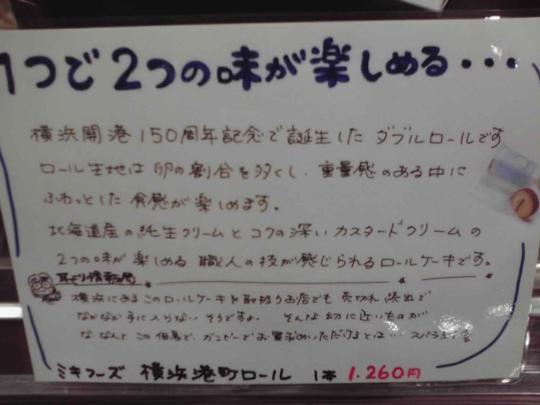 1つで2つの味が楽しめる・・・
横浜開港150周年記念で誕生した ダブルロールです
ロール生地は卵の割合を多くし、重量感のある中に
ふわっとした食感が楽しめます。
北海道産の純生クリームとコクの深いカスタードクリームの
2つの味が楽しめる 職人の技が感じられるロールケーキです。
横浜にあるこのロールケーキを取扱うお店でも 売切れ続出で
なかなか手に入らないそうですよ。 そんな幻に近いものが
な・なんと この但馬で、ガンピーでお買求めいただけるとは…
ミキフーズ 横浜港町ロール 1本 1,260円